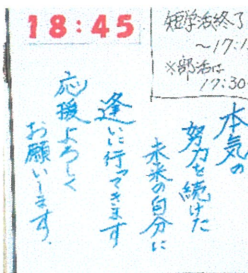 18:45
短学活終了
～17:1
※部活は
17:30
本気の
努力を続けた
未来の自分に
逢いに行ってきます
応援よろしく
お願いします。